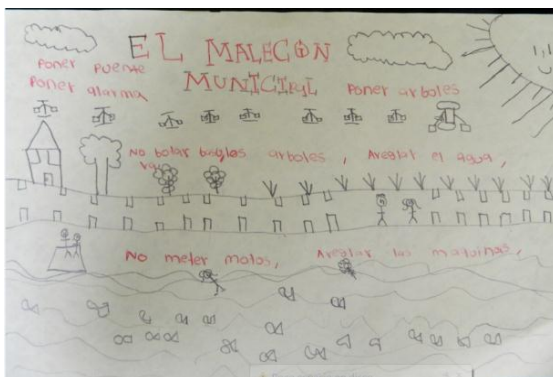 EL MALECÓN
MUNICIPAL
Poner puente
Poner alarma
Poner arboles
No botar arboles, Areglar el agua,
No meter motos, Areglar las maquinas,